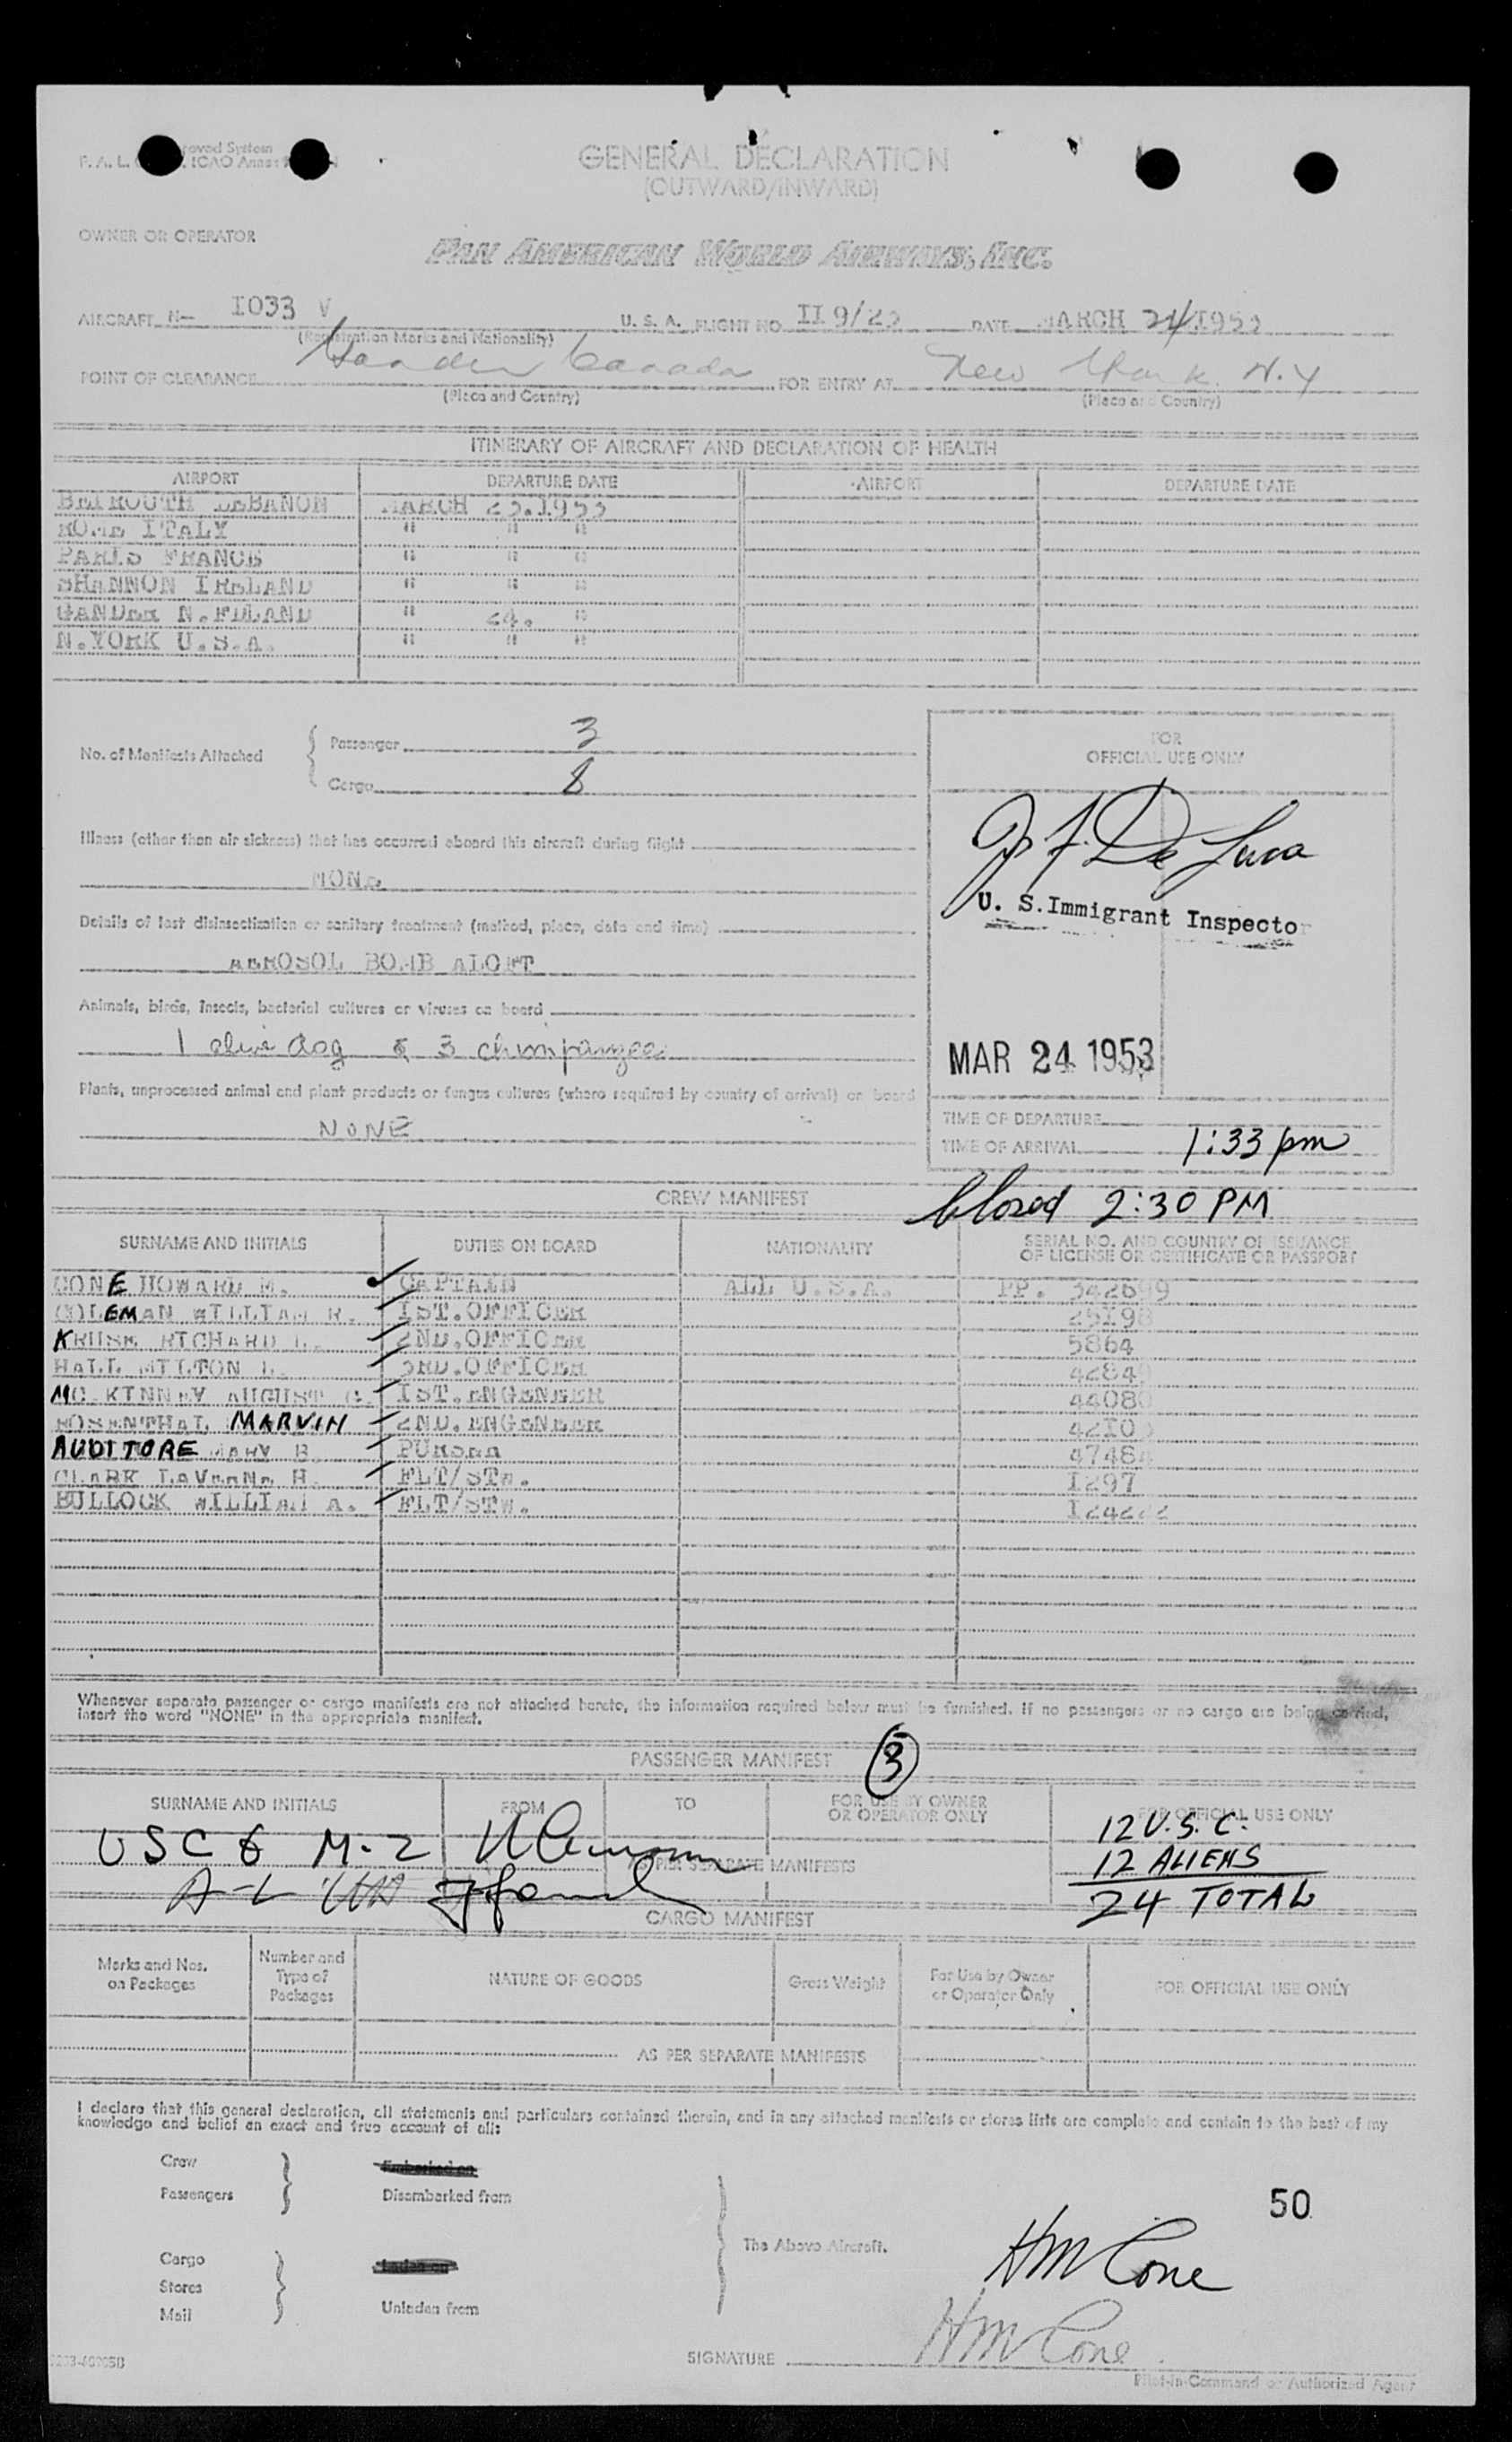 GENERAL DECLARATION
(OUTWARD/INWARD)
OWNER OR OPERATOR
PAN AMERICAN WORLD AIRWAYS, INC.
AIRCRAFT N- 1033 V U. S. A. FLIGHT NO. II9/23 DATE MARCH 24/1953
(Registration Marks and Nationality)
POINT OF CLEARANCE Gander Canada FOR ENTRY AT New York. N.Y
(Place and Country) (Place and Country)
ITINERARY OF AIRCRAFT AND DECLARATION OF HEALTH
AIRPORT DEPARTURE DATE AIRPORT DEPARTURE DATE
BEIROUTH LEBANON MARCH 23.1953
ROME ITALY " " "
PARIS FRANCE " " "
SHANNON IRELAND " " "
GANDER N.FDLAND " 24. "
N.YORK U.S.A. " " "
No. of Manifests Attached { Passenger 3
Cargo 8
FOR
OFFICIAL USE ONLY
Illness (other than air sickness) that has occurred aboard this aircraft during flight
NONE
J F. De Luca
U. S. Immigrant Inspector
Details of last disinsectization or sanitary treatment (method, place, date and time)
AEROSOL BOMB ALOFT
Animals, birds, insects, bacterial cultures or viruses on board
1 live dog & 3 chimpanzee
MAR 24 1953
Plants, unprocessed animal and plant products or fungus cultures (where required by country of arrival) on board
NONE
TIME OF DEPARTURE
TIME OF ARRIVAL 1:33 pm
CREW MANIFEST
Closed 2:30 PM
SURNAME AND INITIALS DUTIES ON BOARD NATIONALITY SERIAL NO. AND COUNTRY OF ISSUANCE
OF LICENSE OR CERTIFICATE OR PASSPORT
CONE HOWARD M. CAPTAIN ALL U.S.A. PP. 342699
COLEMAN WILLIAM R. IST.OFFICER
KRUSE RICHARD L. 2ND.OFFICER 5864
HALL MILTON L. 3RD.OFFICER
MC.KINNEY AUGUST C. IST.ENGENEER
ROSENTHAL MARVIN 2ND.ENGENEER
AUDITORE MARY B. PURSER
CLARK LaVerne H. FLT/STW. I297
BULLOCK WILLIAM A. FLT/STW.
Whenever separate passenger or cargo manifests are not attached hereto, the information required below must be furnished. If no passengers or no cargo are being carried,
insert the word "NONE" in the appropriate manifest.
PASSENGER MANIFEST
SURNAME AND INITIALS FROM TO FOR USE BY OWNER
OR OPERATOR ONLY FOR OFFICIAL USE ONLY
USC 6 M-2
AS PER SEPARATE MANIFESTS
12 U.S.C.
12 ALIENS
24 TOTAL
CARGO MANIFEST
Marks and Nos.
on Packages Number and
Type of
Packages NATURE OF GOODS Gross Weight For Use by Owner
or Operator Only FOR OFFICIAL USE ONLY
AS PER SEPARATE MANIFESTS
I declare that this general declaration, all statements and particulars contained therein, and in any attached manifests or stores lists are complete and contain to the best of my
knowledge and belief an exact and true account of all:
Crew Embarked on
Passengers Disembarked from
50
The Above Aircraft.
Cargo Laden on
Stores
Mail Unladen from
HM Cone
HM Cone
SIGNATURE
Pilot-in-Command or Authorized Agent